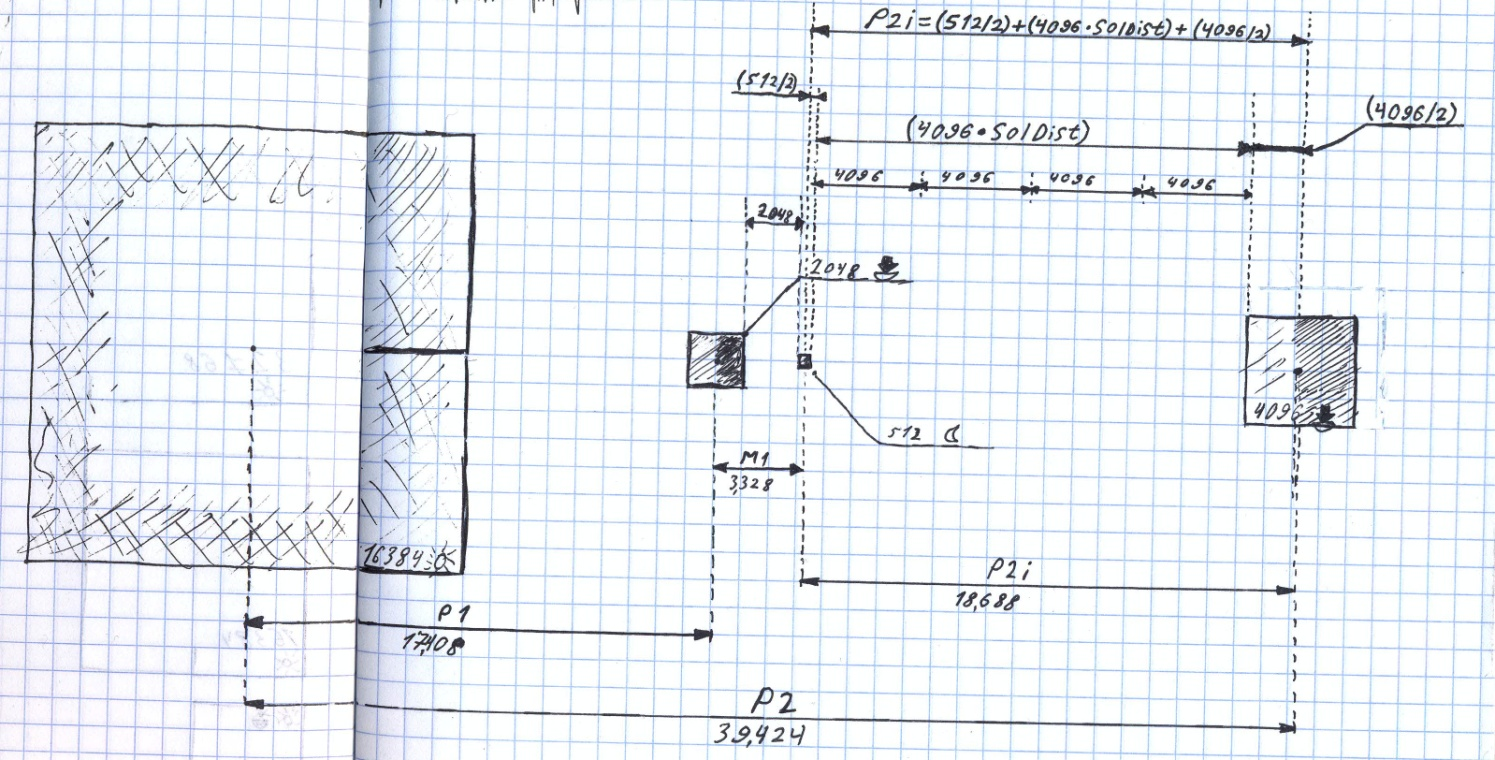 P2i=(512/2)+(4096·SolDist)+(4096/2)
(512/2)
(4096/2)
(4096•SolDist)
4096 4096 4096 4096
2048
2048
512
4096
M1
3,328
16384
P2i
18,688
P1
17,408
P2
39,424